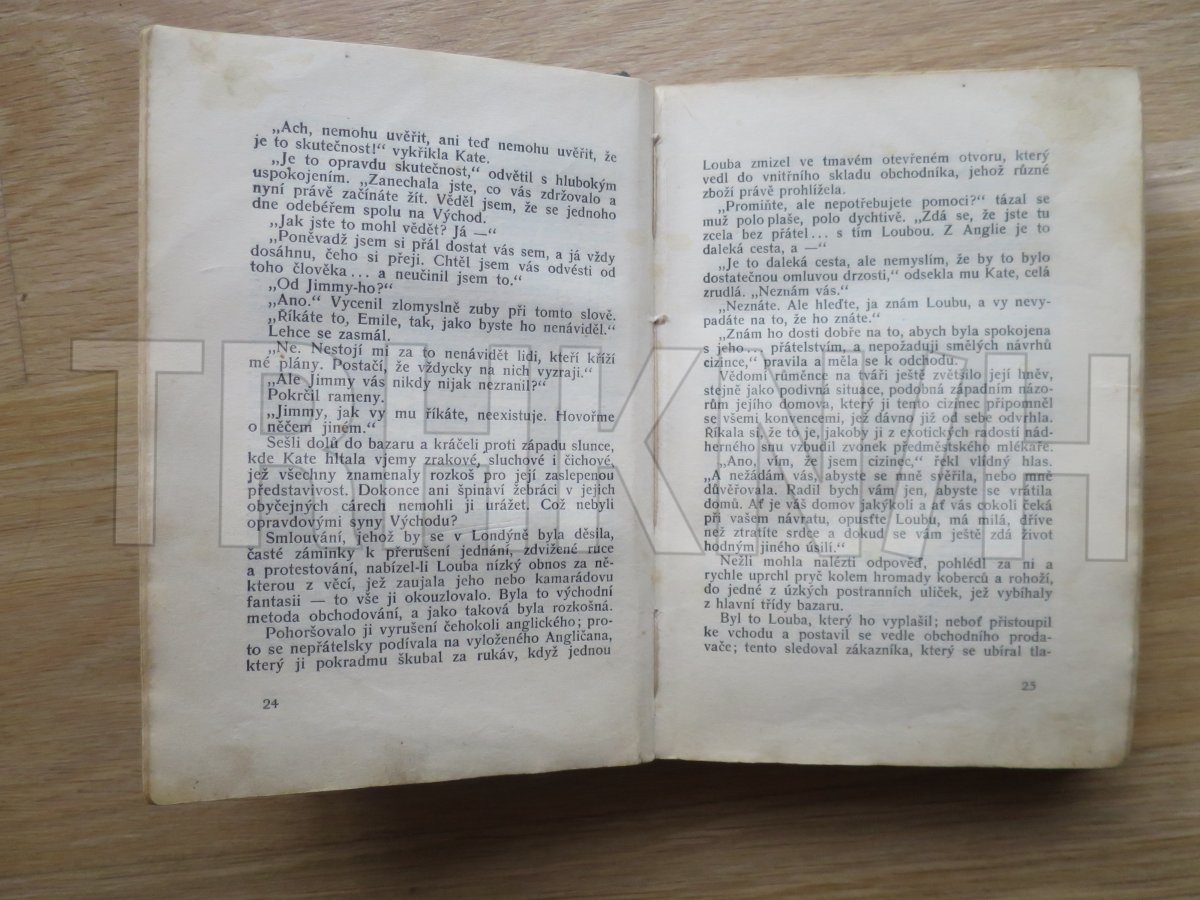 „Ach, nemohu uvěřit, ani teď nemohu uvěřit, že
je to skutečnost!“ vykřikla Kate.
„Je to opravdu skutečnost,“ odvětil s hlubokým
uspokojením. „Zanechala jste, co vás zdržovalo a
nyní právě začínáte žít. Věděl jsem, že se jednoho
dne odebéřem spolu na Východ.
„Jak jste to mohl vědět? Já —“
„Poněvadž jsem si přál dostat vás sem, a já vždy
dosáhnu, čeho si přeji. Chtěl jsem vás odvésti od
toho člověka... a neučinil jsem to.“
„Od Jimmy-ho?“
„Ano.“ Vycenil zlomyslně zuby při tomto slově.
„Říkáte to, Emile, tak, jako byste ho nenáviděl.“
Lehce se zasmál.
„Ne. Nestojí mi za to nenávidět lidi, kteří kříží
mé plány. Postačí, že vždycky na nich vyzraji.“
„Ale Jimmy vás nikdy nijak nezranil?“
Pokrčil rameny.
„Jimmy, jak vy mu říkáte, neexistuje. Hovořme
o něčem jiném.“
Sešli dolů do bazaru a kráčeli proti západu slunce,
kde Kate hltala vjemy zrakové, sluchové i čichové,
jež všechny znamenaly rozkoš pro její zaslepenou
představivost. Dokonce ani špinaví žebráci v jejich
obyčejných cárech nemohli ji urážet. Což nebyli
opravdovými syny Východu?
Smlouvání, jehož by se v Londýně byla děsila,
časté záminky k přerušení jednání, zdvižené ruce
a protestování, nabízel-li Louba nízký obnos za ně-
kterou z věcí, jež zaujala jeho nebo kamarádovu
fantasii — to vše ji okouzlovalo. Byla to východní
metoda obchodování, a jako taková byla rozkošná.
Pohoršovalo ji vyrušení čehokoli anglického; pro-
to se nepřátelsky podívala na vyloženého Angličana,
který ji pokradmu škubal za rukáv, když jednou
24
Louba zmizel ve tmavém otevřeném otvoru, který
vedl do vnitřního skladu obchodníka, jehož různé
zboží právě prohlížela.
„Promiňte, ale nepotřebujete pomoci?“ tázal se
muž polo plaše, polo dychtivě. „Zdá se, že jste tu
zcela bez přátel... s tím Loubou. Z Anglie je to
daleká cesta, a —“
„Je to daleká cesta, ale nemyslím, že by to bylo
dostatečnou omluvou drzosti,“ odsekla mu Kate, celá
zrudlá. „Neznám vás.“
„Neznáte. Ale hleďte, ja znám Loubu, a vy nevy-
padáte na to, že ho znáte.“
„Znám ho dosti dobře na to, abych byla spokojena
s jeho... přátelstvím, a nepožaduji smělých návrhů
cizince,“ pravila a měla se k odchodu.
Vědomí ruměnce na tváři ještě zvětšilo její hněv,
stejně jako podivná situace, podobná západním názo-
rům jejího domova, který ji tento cizinec připomněl
se všemi konvencemi, jež dávno již od sebe odvrhla.
Říkala si, že to je, jakoby ji z exotických radostí nád-
herného snu vzbudil zvonek předměstského mlékaře.
„Ano, vím, že jsem cizinec,“ řekl vlídný hlas.
„A nežádám vás, abyste se mně svěřila, nebo mně
důvěřovala. Radil bych vám jen, abyste se vrátila
domů. Ať je váš domov jakýkoli a ať vás cokoli čeká
při vašem návratu, opusťte Loubu, má milá, dříve
než ztratíte srdce a dokud se vám ještě zdá život
hodným jiného úsilí.“
Nežli mohla nalézti odpověď, pohlédl za ni a
rychle uprchl pryč kolem hromady koberců a rohoží,
do jedné z úzkých postranních uliček, jež vybíhaly
z hlavní třídy bazaru.
Byl to Louba, který ho vyplašil; neboť přistoupil
ke vchodu a postavil se vedle obchodního proda-
vače; tento sledoval zákazníka, který se ubíral tla-
25
TRHKNIH